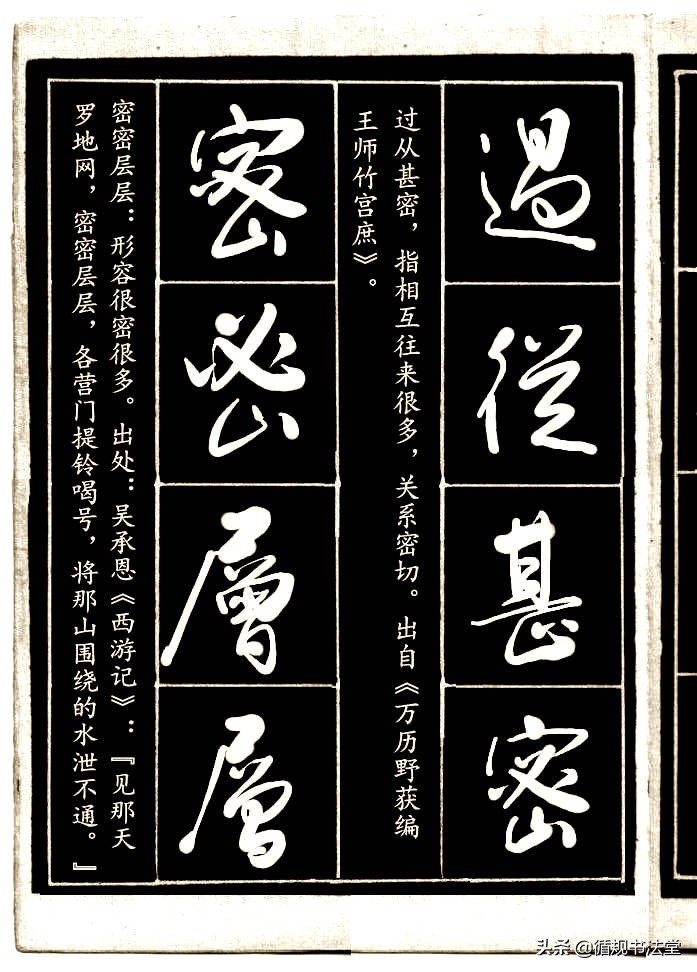 過從甚密
过从甚密，指相互往来很多，关系密切。出自《万历野获编
王师竹宫庶》。
密密層層
密密层层：形容很密很多。出处：吴承恩《西游记》：『见那天
罗地网，密密层层，各营门提铃喝号，将那山围绕的水泄不通。』
头条 @循规书法堂